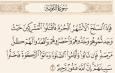 سورة التوبة
فإذا انسلخ الأشهر الحرم فاقتلوا المشركين حيث
وجدتموهم وخذوهم واحصروهم واقعدوا لهم كل
مرصد فإن تابوا وأقاموا الصلاة وآتوا الزكاة فخلوا
سبيلهم إن الله غفور رحيم